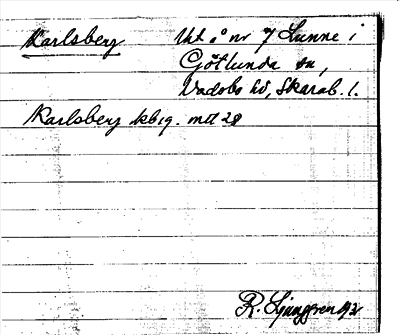 Karlsberg Utt å nr 7 Lunne i
Götlunda sn,
Vadsbo hd, Skarab. l.
Karlsberg kbig. mtt 28
R. Ljunggren 1921